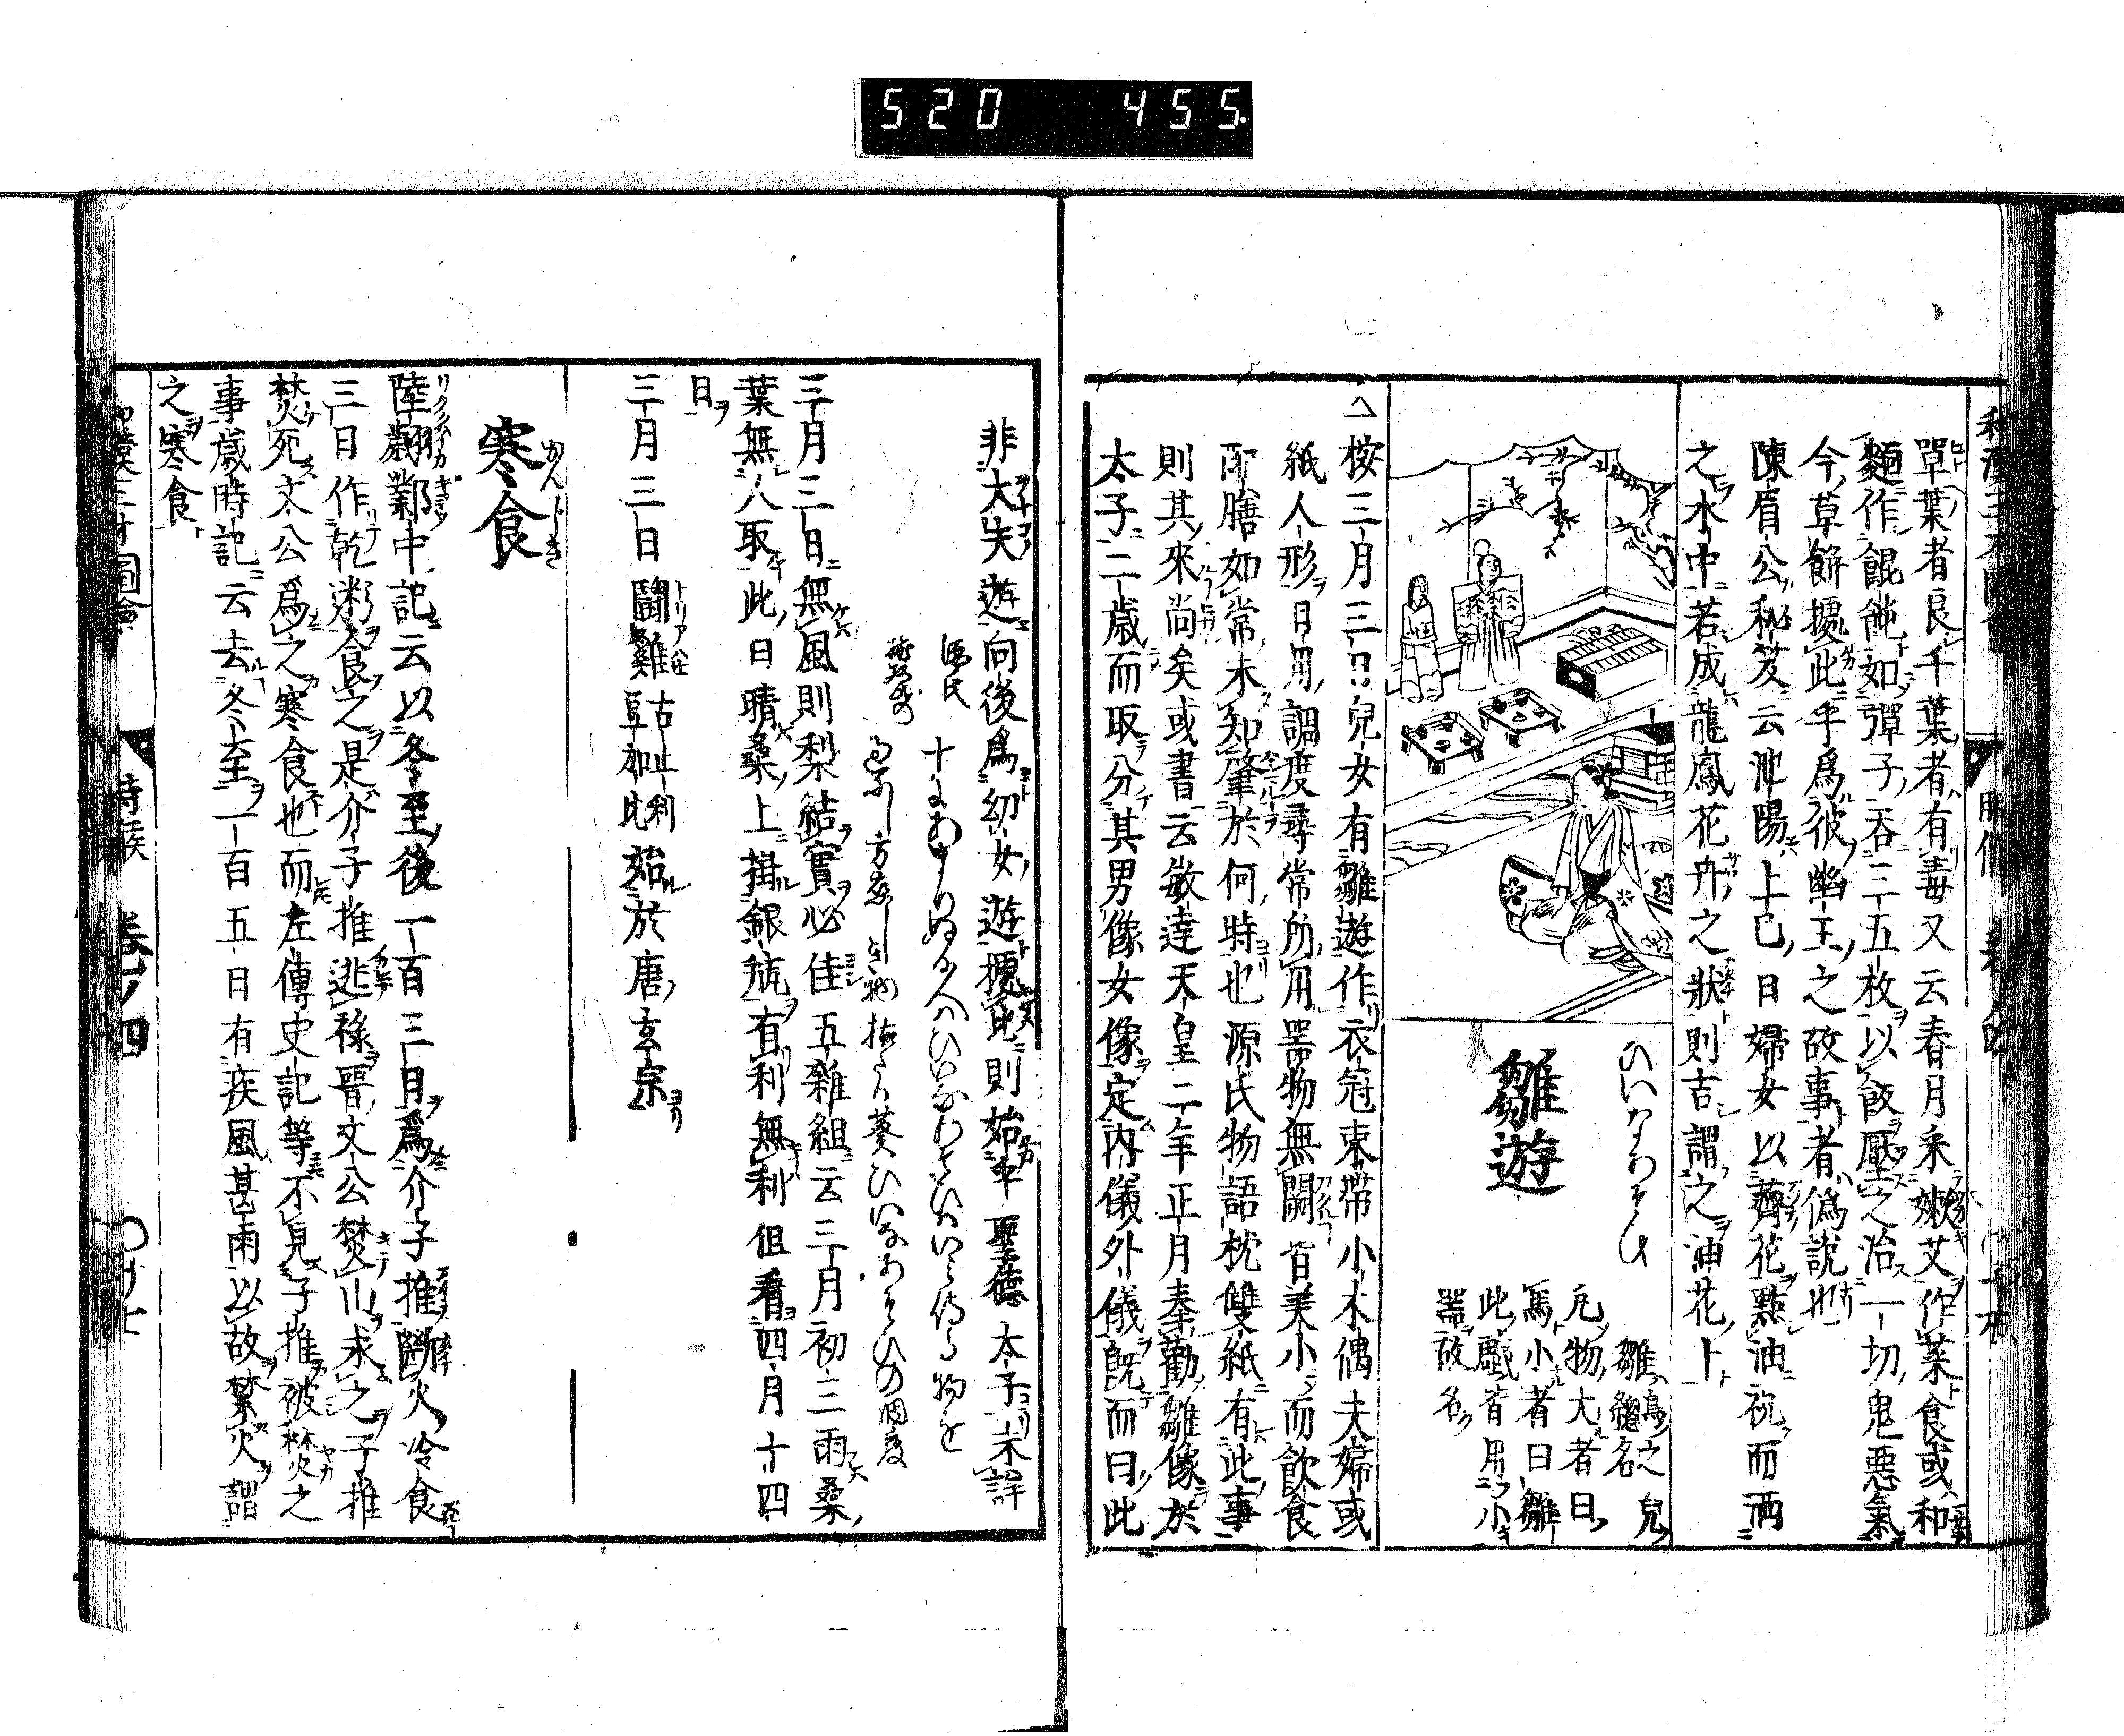 520 455
單葉者良千葉者有毒又云春月采嫩艾作菜食或和
麵作餛飩如彈子吞三五枚以飯壓之治一切鬼惡氣
今草餅據此乎爲彼幽王之故事者僞說也
陳眉公秘笈云池陽上巳日婦女以薺花點油祝而洒
之水中若成龍鳳花卉之狀則吉謂之油花卜
ひいなあそひ
雛遊
雛鳥之兒
總名
凡物大者曰
馬小者曰雛
此戲皆用小
器故名
△按三月三日兒女有雛遊作衣冠束帶小木偶夫婦或
紙人形日用調度尋常所用器物無闕皆美小而飲食
配膳如常未知肇於何時也源氏物語枕雙紙有此事
則其來尚矣或書云敏達天皇二年正月秦勸雛像於
太子二歲而取分其男像女像定內儀外儀旣而曰此
非大失遊向後爲幼女遊據此則始平聖德太子未詳
源氏
十にあまりぬる人はひいなあそひはいみ侍る物を
枕双紙
過にし方恋しき物枯たる葵ひいなあそひの調度
三月三日無風則梨結實必佳五雜組云三月初三雨桑
葉無人取此日晴桑上掛銀瓶有利無利但看四月十四
日
三月三日鬪雞
トリアハセ
古止利
豆加比
始於唐玄宗
かんしき
寒食
陸翽鄴中記云以冬至後一百三日爲介子推斷火冷食
三日作乾粥食之是介子推逃祿晉文公焚山求之子推
焚死文公爲之寒食也而左傳史記等不見子推被焚之
事歲時記云去冬至一百五日有疾風甚雨以故禁火謂
之寒食
和漢三才圖會
時候
卷ノ四